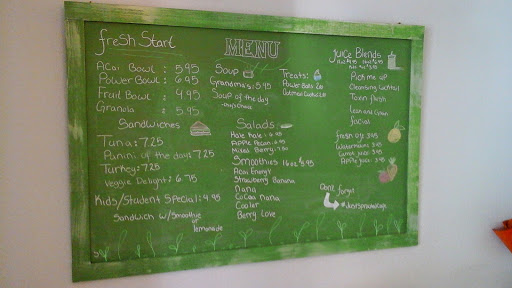 fresh Start
MENU
Acai Bowl : 5.95
Power Bowl : 6.95
Fruit Bowl : 4.95
Granola : 5.95
Sandwiches
Tuna: 7.25
Panini of the day: 7.25
Turkey: 7.25
Veggie Delight: 6.75
Kids/Student Special: 4.95
Sandwich w/Smoothie
lemonade
Soup
Grandma's: 5.95
Soup of the day
Treats:
Power Balls
Oatmeal
Salads
Hale Kale
Apple Pecan
Mixed Berry
Smoothies 16oz
Acai Energy
Strawberry Banana
Nana
CoCoa Nana
Cooler
Berry Love
Juice Blends
Pick me up
Cleansing Cocktail
Toxin flush
Lean and Green
facial
fresh 3.95
Watermelon: 3.95
Carrot juice: 3.95
Apple juice: 3.95
Dont forget